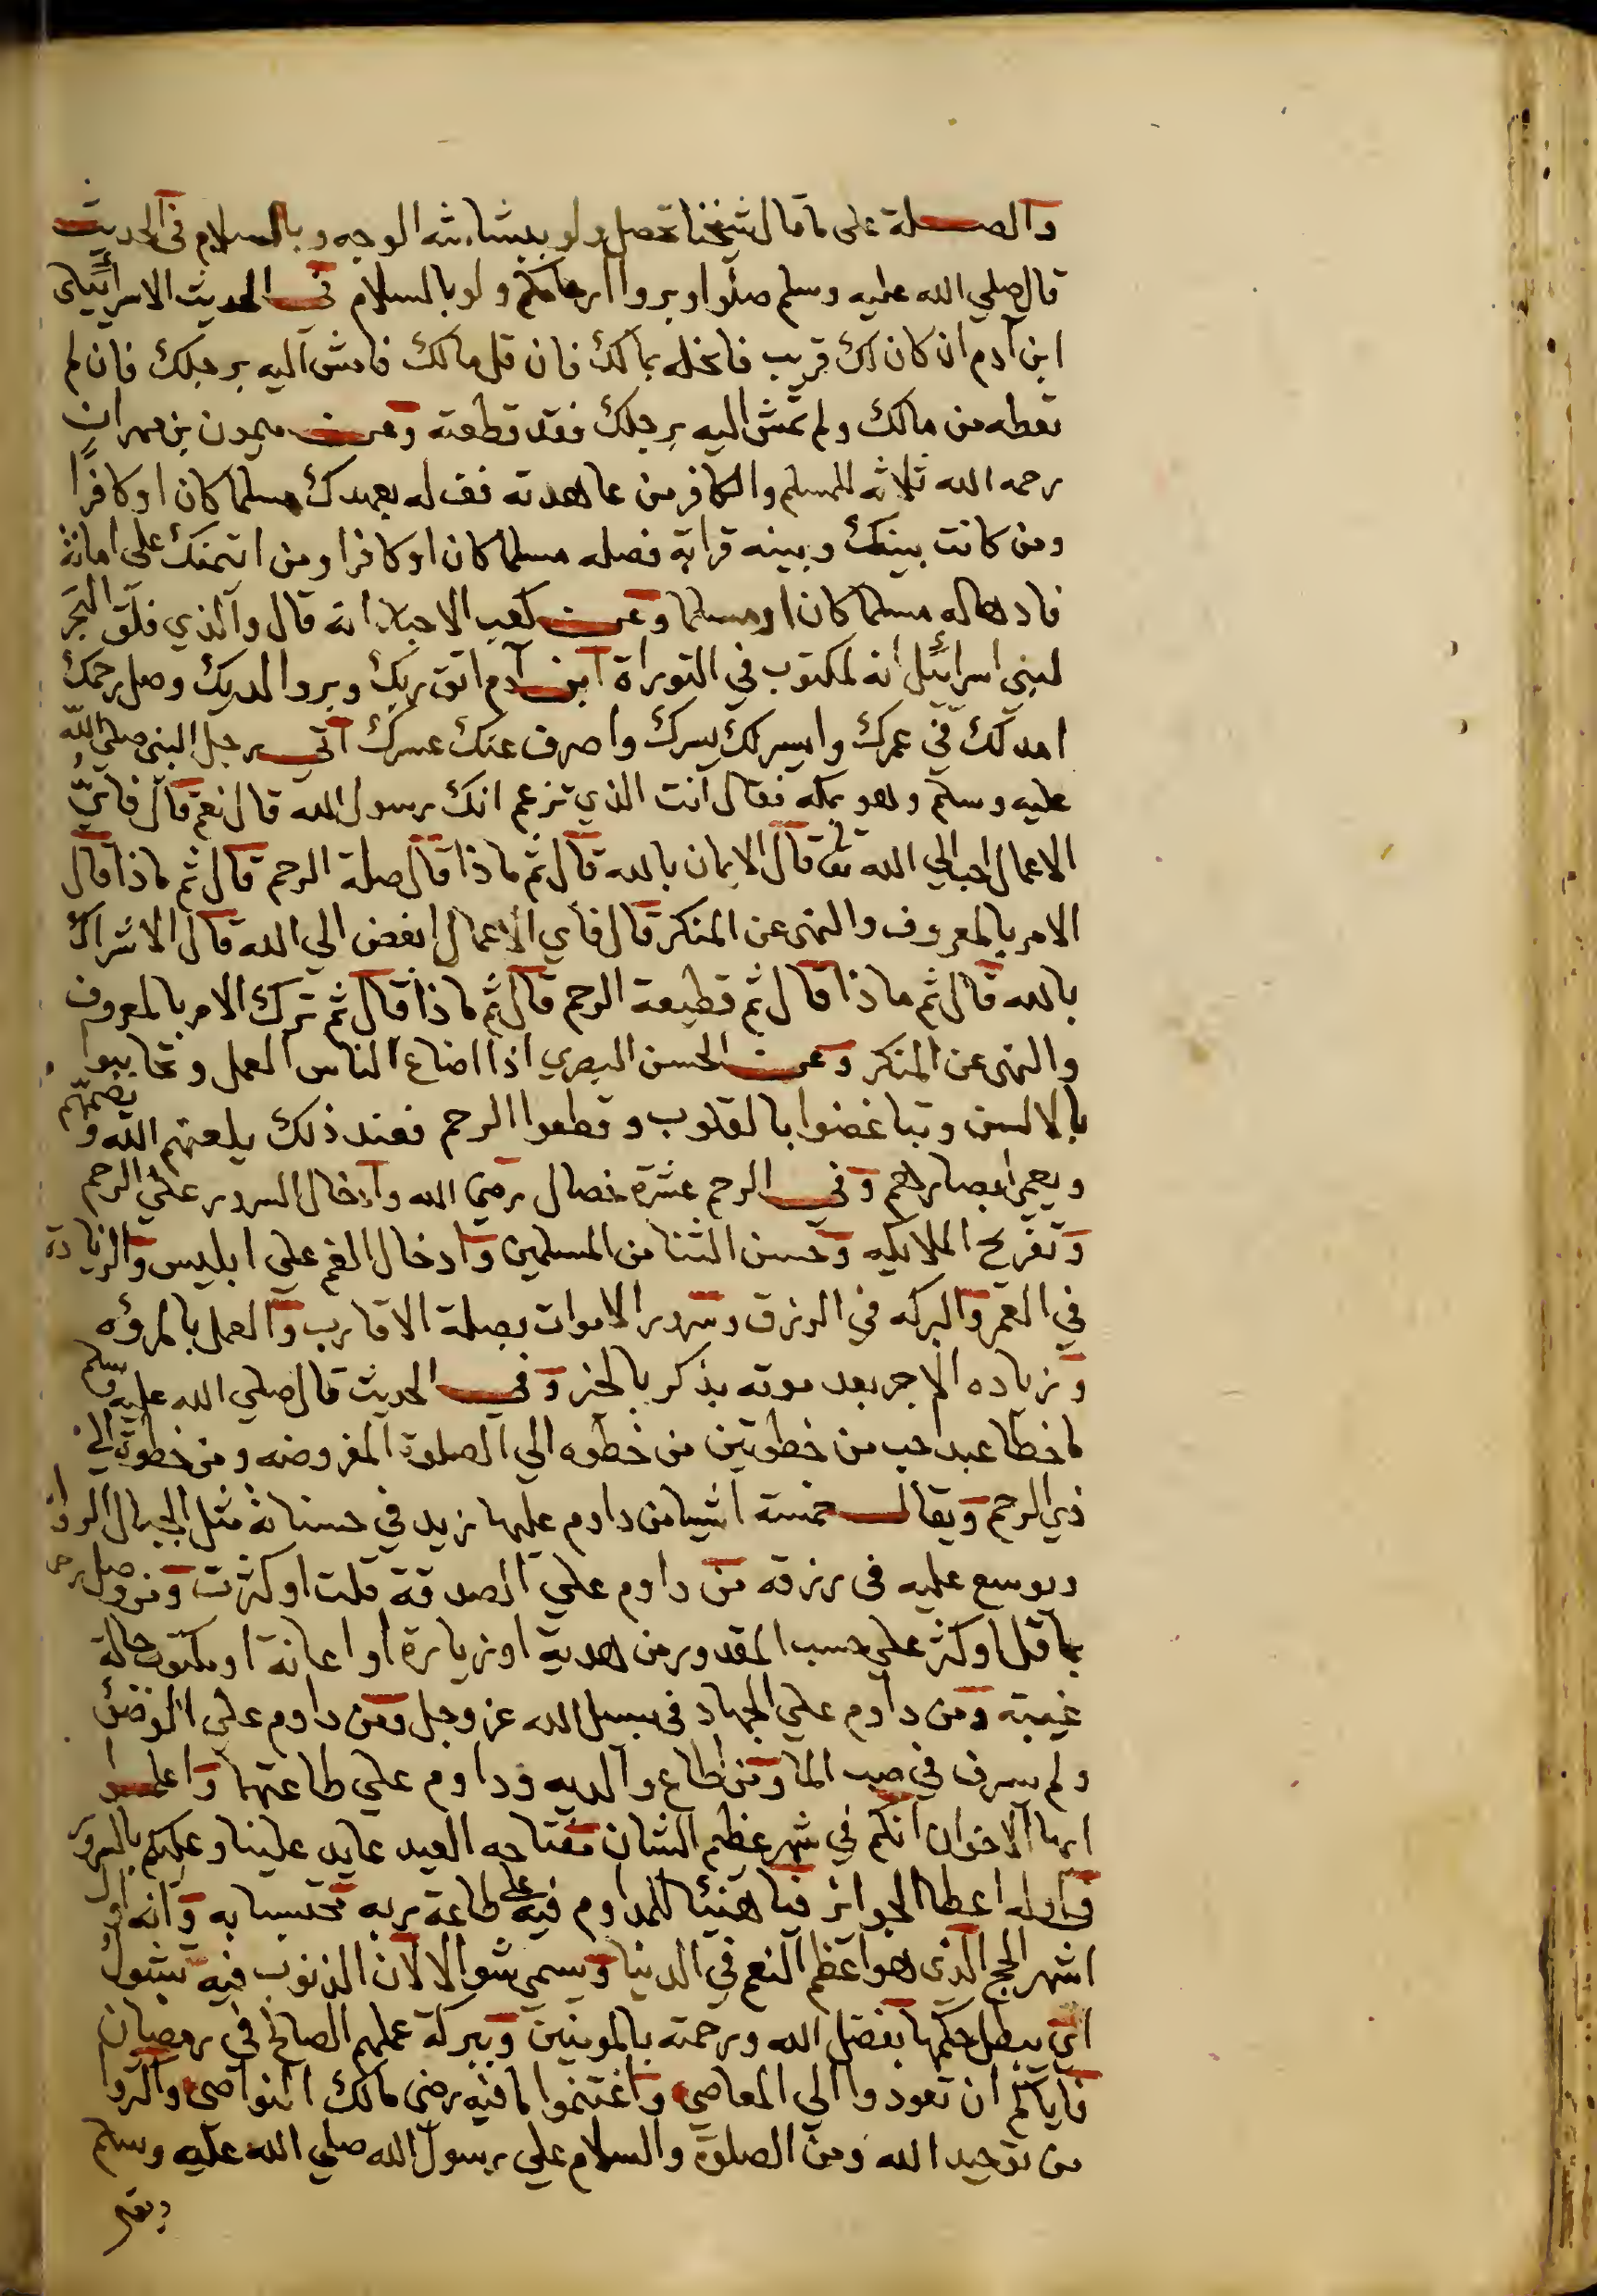 والصلة على ما قال شيخنا تحصل ولو ببشاشة الوجه وبالسلام في الحديث
قال صلي الله عليه وسلم صلوا وبروا ارحامكم ولو بالسلام في الحديث الاسرائيلى
ابن آدم ان كان لك قريب فانحله بمالك فان قل مالك فامش اليه برجلك فان لم
تعطه من مالك ولم تمش اليه برجلك فقد قطعته وعن ميمون بن مهران
رحمه الله ثلاثة للمسلم والكافر من عاهدته فف له بعهدك مسلما كان او كافرًا
ومن كانت بينك وبينه قرابة فصله مسلما كان او كافرا ومن ائتمنك على امانة
فادها له مسلما كان او مسلما وعن كعب الاحبار انه قال والذي فلق البحر
لبني اسرائيل انه لمكتوب في التوراة ابن آدم اتق ربك وبر والديك وصل رحمك
امد لك في عمرك وايسر لك يسرك واصرف عنك عسرك اتي رجل النبي صلي الله
عليه وسلم وهو بمكه فقال انت الذي تزعم انك رسول الله قال نعم قال فايّ
الاعمال احب الي الله تعا قال الايمان بالله قال ثم ماذا قال صلة الرحم قال ثم ماذا قال
الامر بالمعروف والنهى عن المنكر قال فاي الاعمال ابغض الي الله قال الاشراك
بالله قال ثم ماذا قال ثم قطيعة الرحم قال ثم ماذا قال ثم ترك الامر بالمعروف
والنهى عن المنكر وعن الحسن البصري اذا اضاع الناس العمل وتحاببوا
بالالسن وتباغضوا بالقلوب وقطعوا الرحم فعند ذلك يلعنهم الله ويصمهم
ويعمي ابصارهم وفي الرحم عشرة خصال رضى الله وادخال السرور علي الرحم
وتفريح الملايكه وحسن الثنا من المسلمين وادخال الغم علي ابليس والزيادة
في العمر والبركه في الرزق وسرور الاموات بصلة الاقارب والعمل بالمرؤه
وزياده الاجر بعد موته بذكر بالخير وفي الحديث قال صلي الله عليه وسلم
ما خطا عبد احب من خطوتين من خطوه الي الصلوة المفروضه ومن خطوة الي
ذي الرحم ويقال خمسة اشيا من داوم عليها زيد في حسناته مثل الجبال الرواسي
ويوسع عليه في رزقه من داوم علي الصدقة قلت او كثرت ومن وصل رحمه
بما قل او كثر علي حسب المقدور من هدية او زيارة او اعانة او مكتوب حالة
غيبته ومن داوم علي الجهاد في سبيل الله عز وجل ومن داوم علي الوضئ
ولم يسرف في صب الما ومن اطاع والديه وداوم علي طاعتهما واعلموا
ايها الاخوان انكم في شهر عظيم الشان مفتاحه العيد عايد علينا وعليكم بالسرور
واوله اعطا الجوائز فيا هنيئا للمداوم فيه علي طاعة ربه محتسبا به وانه اول
اشهر الحج الذي هو اعظم النعم في الدنيا ويسمي شوالا لان الذنوب فيه تشول
اي يبطل حكمها بفضل الله ورحمته بالمومنين وببركة عملهم الصالح في رمضان
فاياكم ان تعودوا الي المعاصي واغتنموا ما فيه رضى مالك النواصى واكثروا
من توحيد الله ومن الصلوة والسلام علي رسول الله صلي الله عليه وسلم